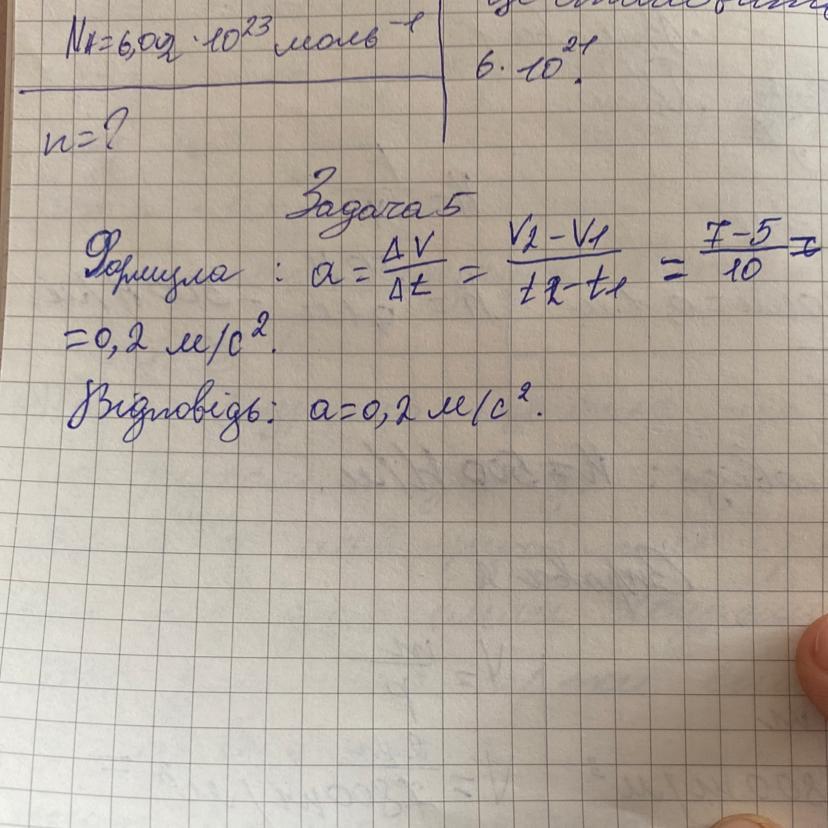 Nа=6,02·10²³ моль⁻¹
6·10²¹.
n=?
Задача 5
Формула : a = ΔV/Δt = V2-V1/t2-t1 = 7-5/10 =
=0,2 м/с².
Відповідь: a=0,2 м/с².